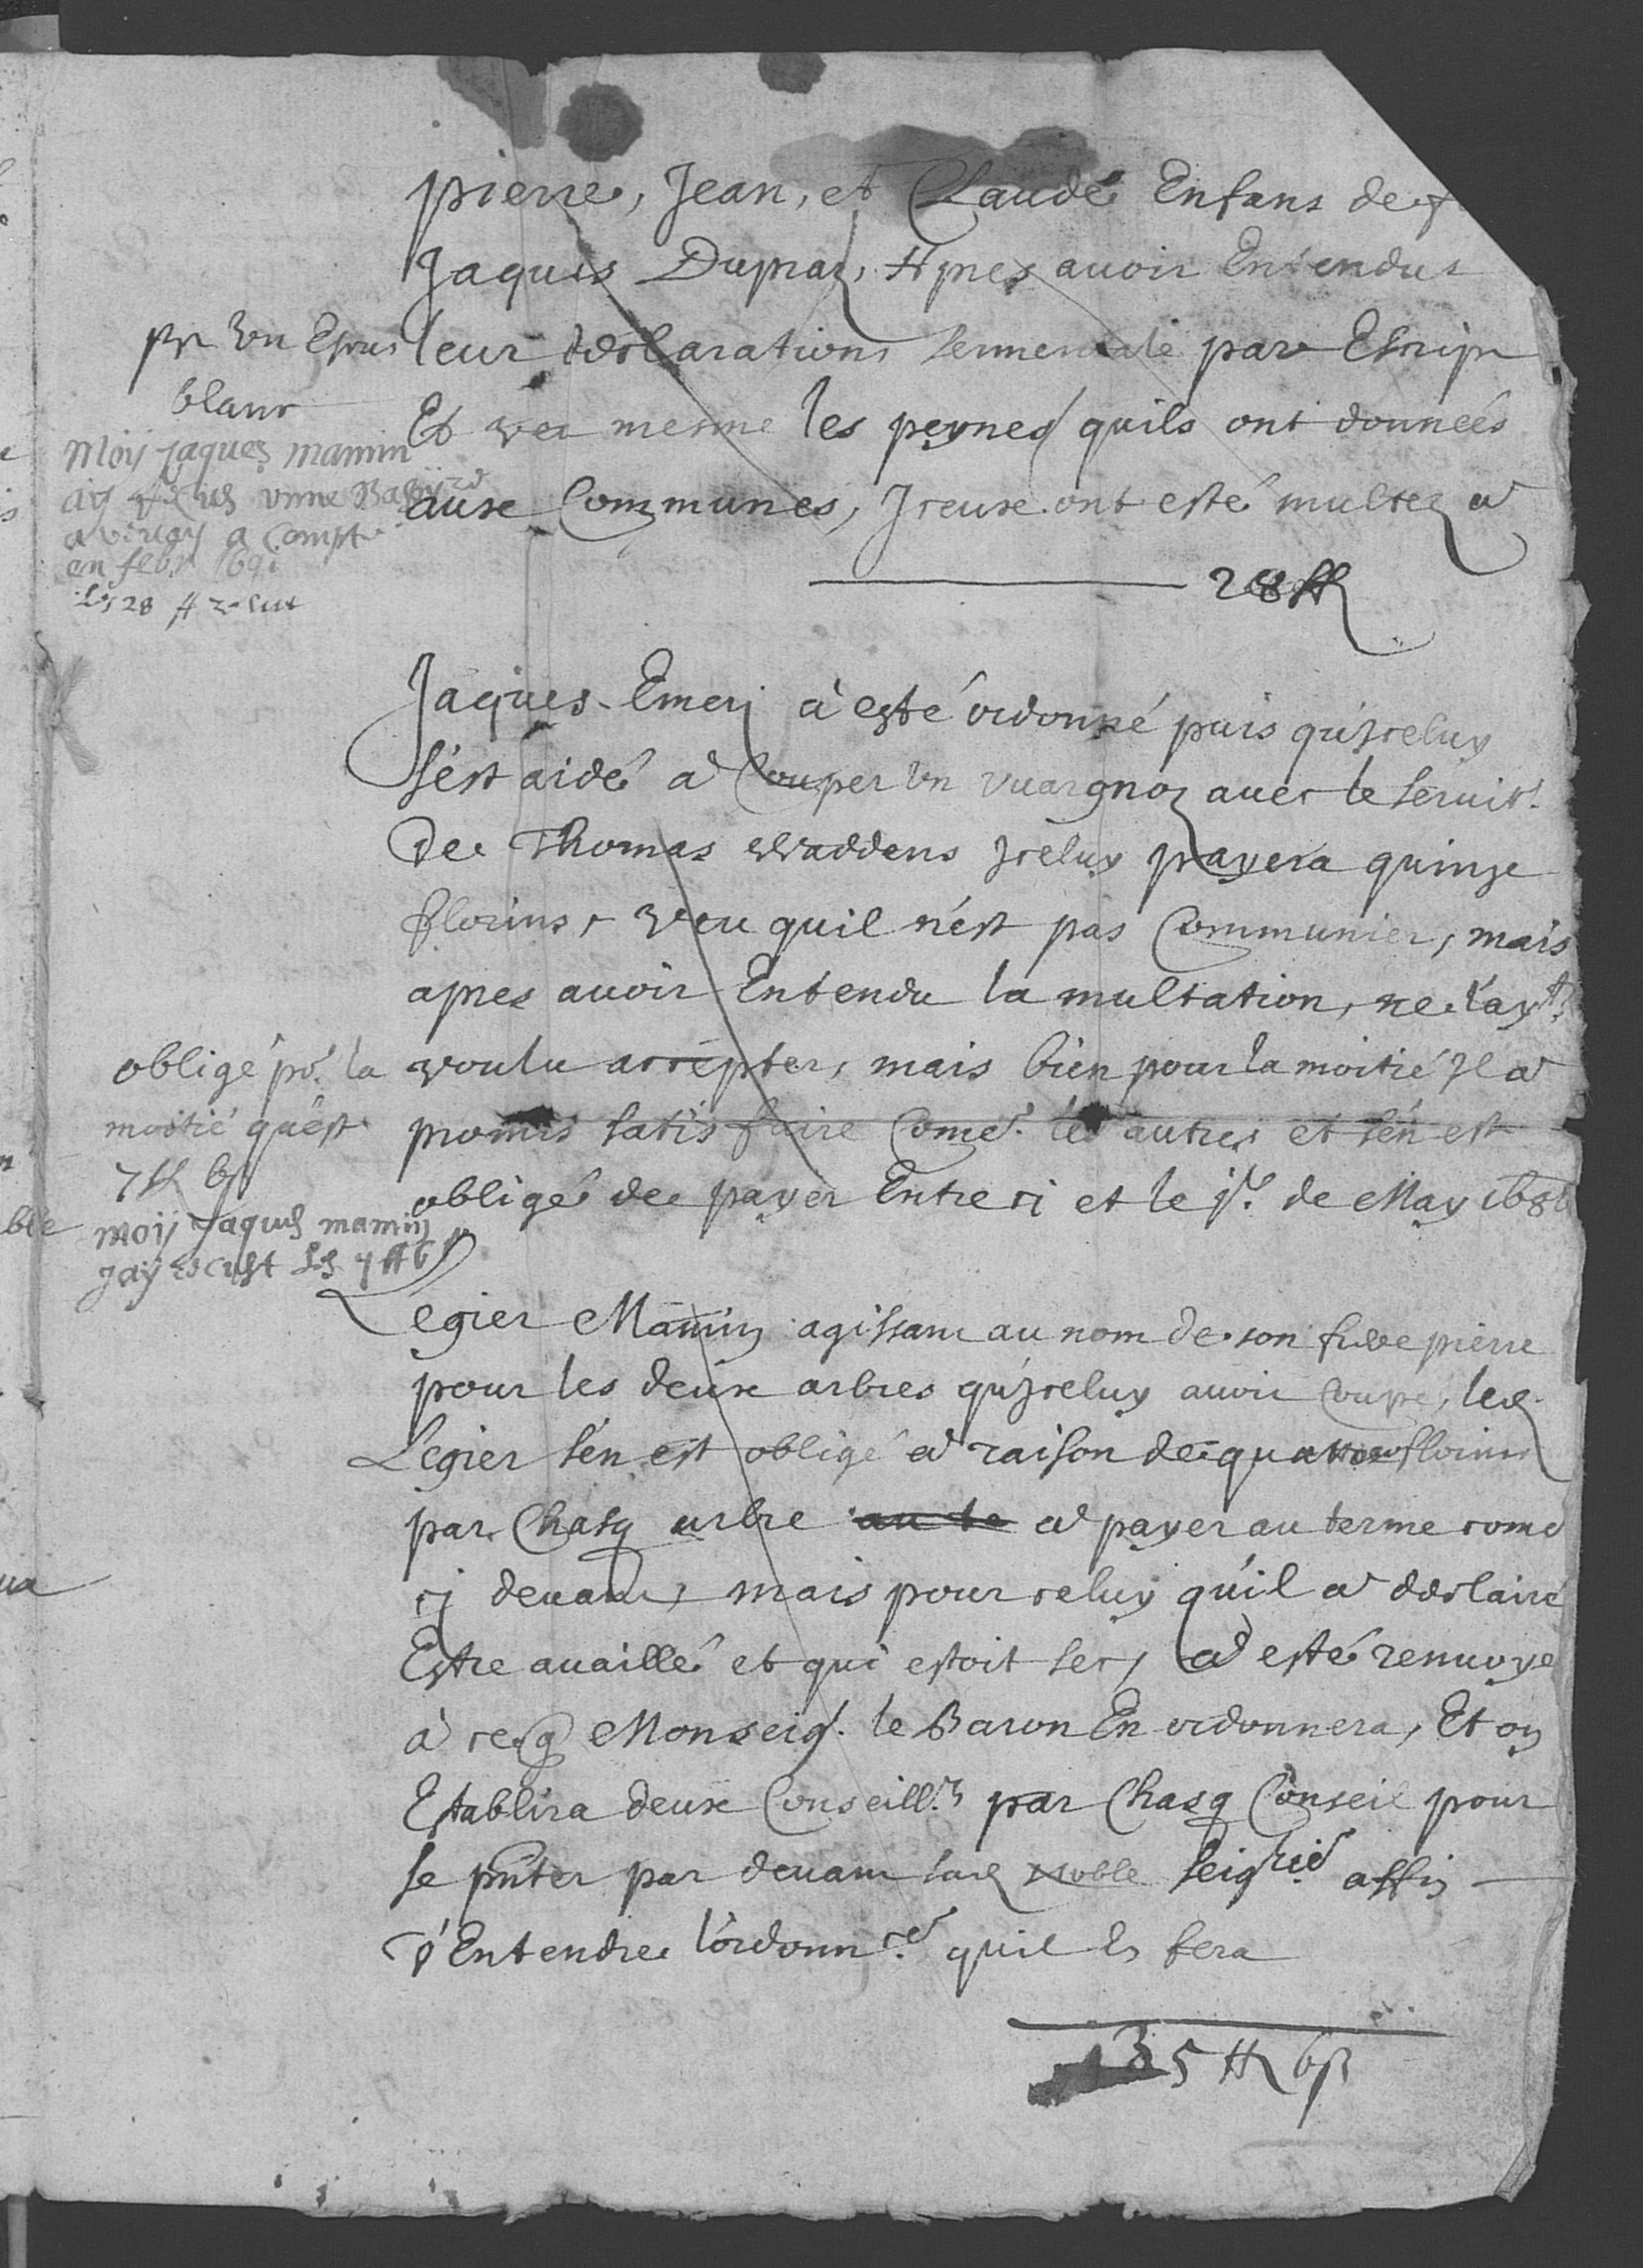 pierre, Jean, et Claude Enfans de
Jaques Dupraz, Apres avoir Entendus
leur declarations sermentale par Escript
Et veu mesme les peynes quils ont données
aux Communes, Iceux ont esté multez a
28 ff
pr un
blanc
Moij Jaques mamin
a compte
en febr 1691
Ls 28 ff
Jaques Emerj à esté ordonné puis qu'Iceluy
s'est aidé a Couper un vuargnoz avec le servit.r
De Thomas Waddens Iceluy payera quinze
florins, veu quil n'est pas Communier, mais
apres avoir Entendu la multation, ne l'ay.t
voulu accepter, mais bien pour la moitié Il a
promis satisfaire Come les autres et s'en est
obligé de payer Entre ci et le j.r de May
obligé po.r la
moitié qu'est
7 ff 6 ß
Moij Jaques mamin
Jaij Ls 7 ff 6 ß
Legier Mamin agissant au nom de son frere pierre
pour les deux arbres qu'Iceluy avoir coupé, led.
Legier s'en est obligé a raison de quattre florins
par Chasq arbre au te a payer au terme come
cj devant, mais pour celuy qu'il a declairé
Estre availlé et qui estoit sec, a esté renvoyé
à ce q Monseig.r le Baron En ordonnera, Et on
Establira deux Conseill.rs par Chasq Conseil pour
se pnter par devant sad Noble seig.rie affin
d'Entendre l'ordonn.ce quil En fera
135 ff 6 ß